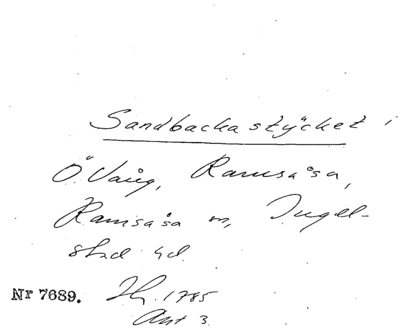 Sandbackastycket i
Ö. Vång, Ramsåsa,
Ramsåsa sn, Ingel-
stad hd.
Nr 7689. 1785
Akt 3.